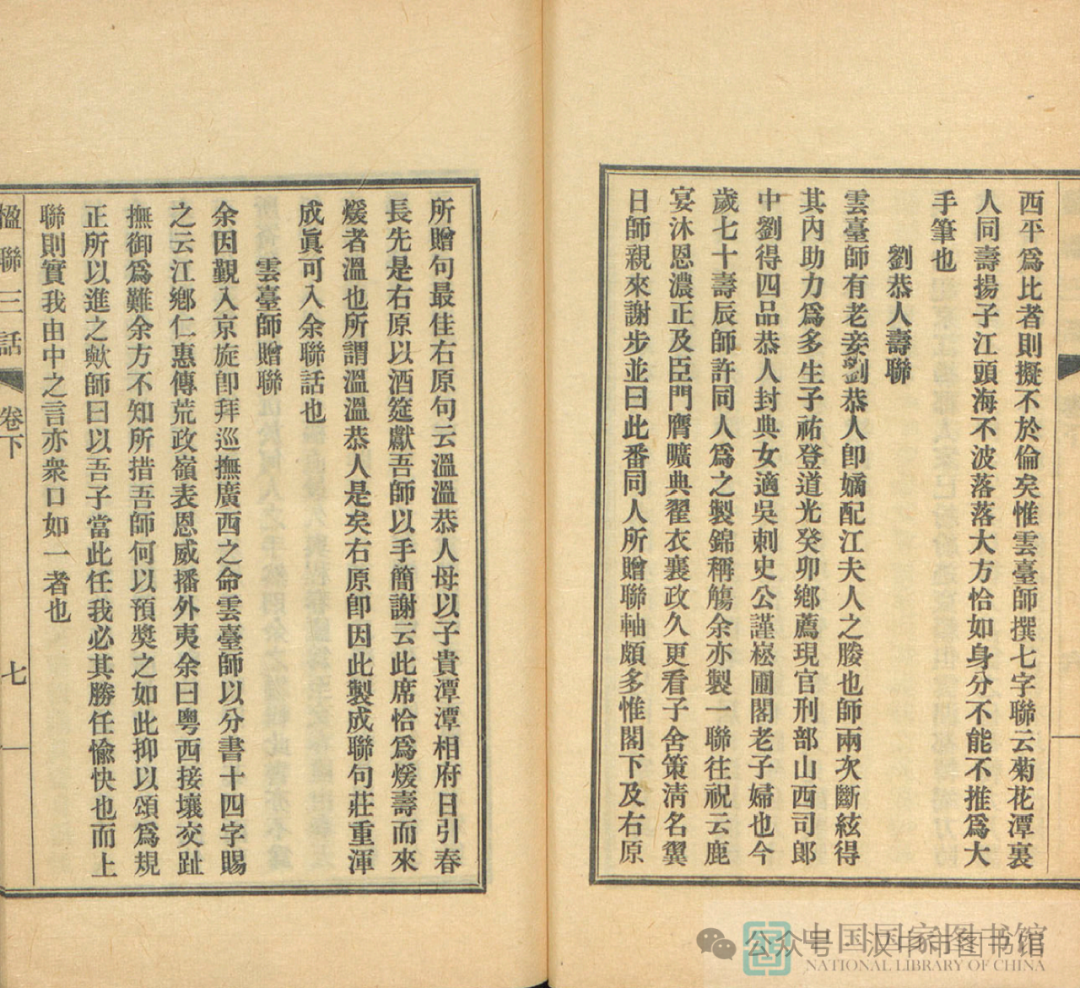 西平爲比者則擬不於倫矣惟雲臺師撰七字聯云菊花潭裏
人同壽揚子江頭海不波落落大方恰如身分不能不推爲大
手筆也
劉恭人壽聯
雲臺師有老妾劉恭人卽嫡配江夫人之媵也師兩次斷絃得
其內助力爲多生子祐登道光癸卯鄉薦現官刑部山西司郞
中劉得四品恭人封典女適吳刺史公謹崧圃閣老子婦也今
歲七十壽辰師許同人爲之製錦稱觴余亦製一聯往祝云鹿
宴沐恩濃正及臣門膺曠典翟衣襄政久更看子舍策淸名翼
日師親來謝步並曰此番同人所贈聯軸頗多惟閣下及右原
所贈句最佳右原句云溫溫恭人母以子貴潭潭相府日引春
長先是右原以酒筵獻吾師以手簡謝云此席恰爲煖壽而來
煖者溫也所謂溫溫恭人是矣右原卽因此製成聯句莊重渾
成眞可入余聯話也
雲臺師贈聯
余因覲入京旋卽拜巡撫廣西之命雲臺師以分書十四字賜
之云江鄉仁惠傳荒政嶺表恩威播外夷余曰粵西接壤交趾
撫御爲難余方不知所措吾師何以預獎之如此抑以頌爲規
正所以進之歟師曰以吾子當此任我必其勝任愉快也而上
聯則實我由中之言亦衆口如一者也
楹聯三話 卷下 七
公众号 汉中市图书馆
中国国家图书馆
NATIONAL LIBRARY OF CHINA